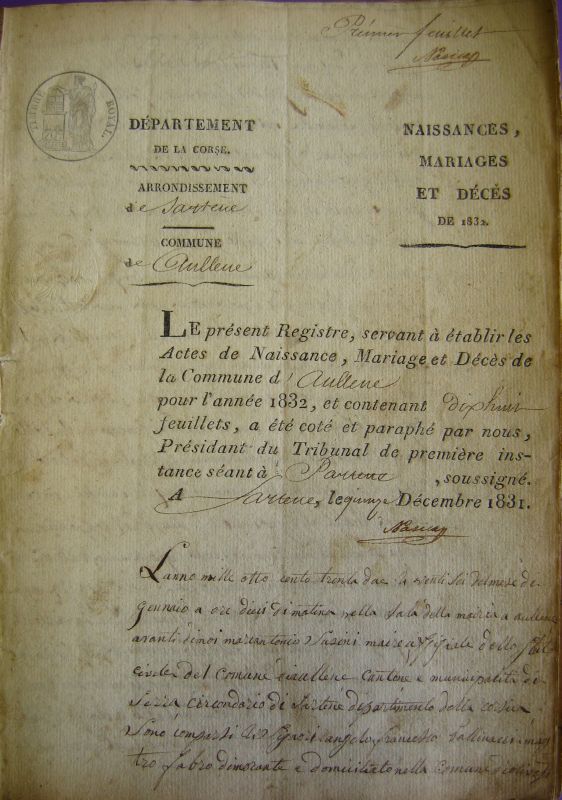 Premier feuillet
TIMBRE ROYAL.
DÉPARTEMENT
DE LA CORSE.
ARRONDISSEMENT
de Sartene
COMMUNE
de Aullene
NAISSANCES,
MARIAGES
ET DÉCÈS
DE 1832.
LE présent Registre, servant à établir les
Actes de Naissance, Mariage et Décès de
la Commune d' Aullene
pour l'année 1832, et contenant dixhuit
feuillets, a été coté et paraphé par nous,
Présidant du Tribunal de première ins-
tance séant à Sartene, soussigné.
A Sartene, le quinze Décembre 1831.
L'anno mille otto cento trenta due li venti sei del mese di
Gennaio a ore dieci di matina nella sala della mairia a aullene
avanti di noi marcantonio Susini maire
del comune di aullene Cantone e municipalita di
Serra circondario di Sartene dipartimento della corsica
Sono comparsi angelo francesco
fabro dimorante e domiciliato nella comune